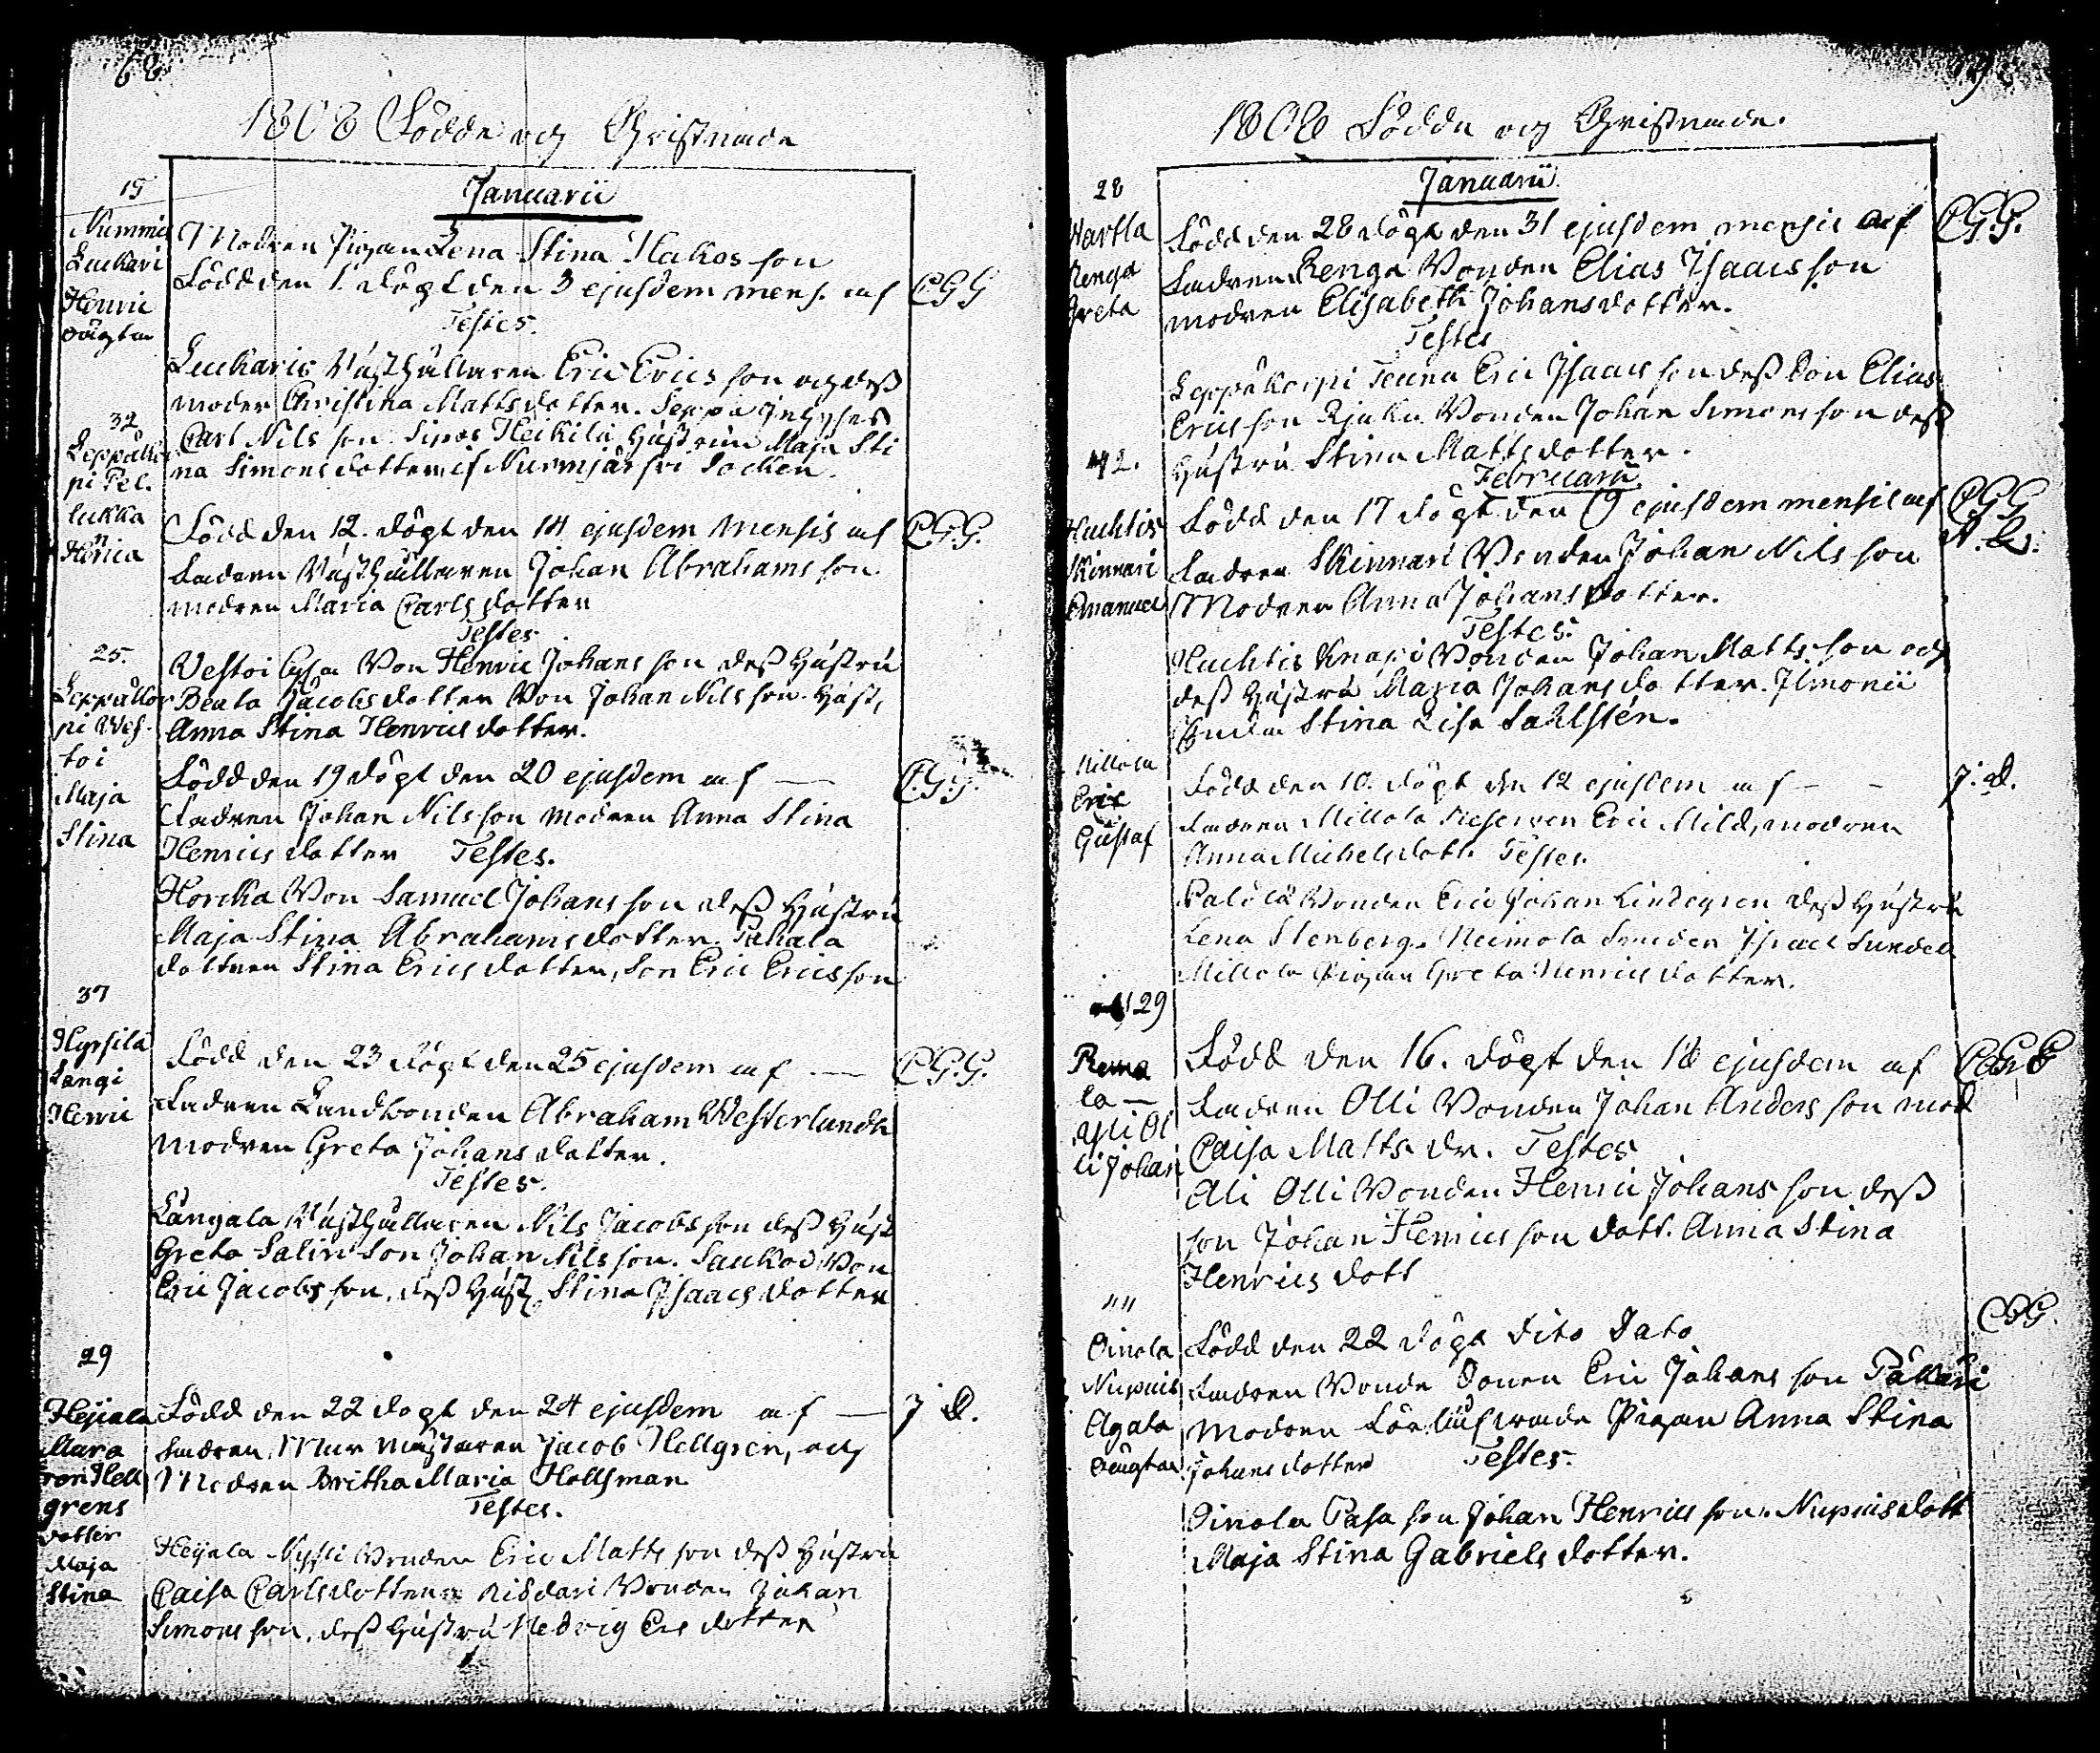 68
1808 Födde og Christnade
Januarii
15
Nummis
Luckari
Henric
oägta
Modren Pigan Lena Stina Hakos son
Född den 1 döpt den 3 ejusdem mens. af CGG
Testes.
Luckaris Inhyses Eric Erics son og deß
moder Christina Matts dotter. Seppä Inhyses
Carl Nils son. Sipos Heikilä Hustrun Maja Sti
na Simons dotter if Nurmijärfvi Socken.
32
Leppäkor
pi Pel.
lukka
Henrica
Född den 12. döpt den 14 ejusdem mensis af CGG.
Fadren Johan Abrahams son.
modren Maria Carls dotter
Testes
25.
Leppäkor
pi Ves-
toi
Maja
Stina
Vestoi Bon Henric Johans son deß Hustru
Beata Jacobs dotter Bon Johan Nils son Hust,
Anna Stina Henrics dotter.
Född den 19 döpt den 20 ejusdem af — C.G.G.
Fadren Johan Nils son modren Anna Stina
Henrics dotter Testes.
Horcka Bon Samuel Johans son deß Hustru
Maja Stina Abrahams dotter. Pahala
dottren Stina Erics dotter, Son Eric Ericsson
37
Hyrsilä
Langi
Henric
Född den 23 döpt den 25 ejusdem af — CGG.
Fadren Landbonden Abraham Westerlundh
modren Greta Johans dotter.
Testes.
Långala Nils Jacobs son deß Hust
Greta Salin Son Johan Nils son. Saukoo Bon
Eric Jacobs son, deß Hust Stina Isaacs dotter
29
Hejiala
Mura
ren Hell
grens
dotter
Maja
Stina
Född den 22 dopt den 24 ejusdem af — J D.
fadren, Mur mästaren Jacob Hellgren, och
Modren Britha Maria Hollsman
Testes.
Heijala Nyssi Bonden Eric Matts son deß Hustru
Caisa Carls dotter Bonden Johan
Simons son, deß Hustru Hedvig Ers dotter
1808 Födde og Christnade.
Januarii
28
Wartla
Renga
Greta
Född den 28 döpt den 31 ejusdem mensis af CGG.
Fadren Renga Bonden Elias Isaacs son
modren Elisabeth Johans dotter.
Testes
Leppäkorpi Eric Isaacs son deß Son Elias
Erics son Bonden Johan Simons son deß
Hustru Stina Matts dotter.
42.
Februarii
Huchtis
Skinnari
Emanuel
Född den 17 döpt den 19 ejusdem mensis af CGG
Fadren Skinnari Bonden Johan Nils son
Modren Anna Johans dotter.
Testes.
Huchtis Knapi Bonden Johan Matts son och
deß Hustru Maria Johans dotter.
Enkan Stina Lisa Sahlstén.
Millola
Eric
Gustaf
Född den 10. döpt den 12 ejusdem af — — J. D.
fadren Millola Reserven Eric Mild, modren
Anna Michels dott. Testes.
Palölä Bonden Eric Johan Lindegren deß Hustru
Lena Stenberg. Neimola Smeden Isaac Sundell
Millola Pigan Greta Henrics dotter.
29
Rema
la —
Yli Ol
li Johan
Född den 16. döpt den 18 ejusdem af CGG
fadren Olli Bonden Johan Anders son mod
Caisa Matts dr. Testes
Ali Olli Bonden Henric Johans son deß
son Johan Henrics son dott. Anna Stina
Henrics dott
44
Oinola
Nupuis
Agata
oäugta
Född den 22 döpt dito dato CGG.
fadren Bonde Sonen Eric Johans son Pällari
Modren Pigan Anna Stina
Johans dotter Testes.
Oinola Pasa son Johan Henrics son. Nupuis dott
Maja Stina Gabriels dotter.